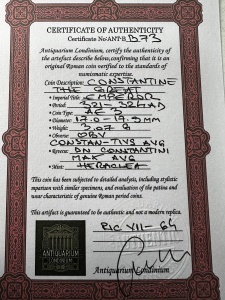 CERTIFICATE OF AUTHENTICITY
Certificate No: ANT-B B73
Antiquarium Londinium, certify the authenticity of
the artefact described below, confirming that it is an
original Roman coin verified to the standards of
numismatic expertise.
Coin Description: CONSTANTINE
THE GREAT
• Imperial Title: EMPEROR
• Period: 321-324AD
• Coin Type: AE 3
• Diameter: 17.0-19.5MM
• Weight: 3.07 g
• Obverse: OBV
CONSTAN-TIVS AVG
• Reverse: DN CONSTANTINI
MAX AVG
• Mint: HERACLEA
This coin has been subjected to detailed analysis, including stylistic
comparison with similar specimens, and evaluation of the patina and
wear characteristic of genuine Roman period coins.
This artifact is guaranteed authentic and not a modern replica.
RIC VII-64
ANTIQUARIUM
LONDINIUM
Antiquarium Londinium